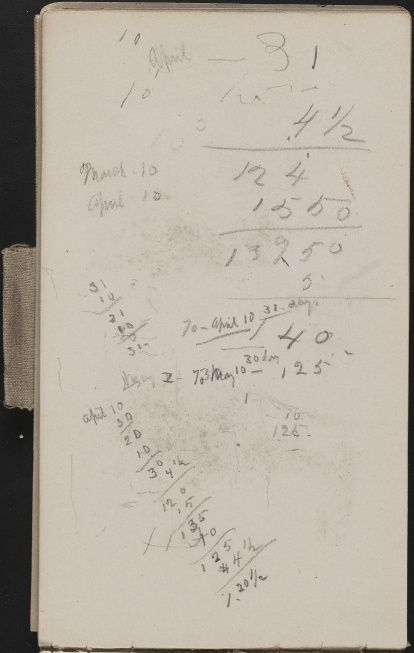 10
April — 31
10
4 1/2
March 10
124
April 10
1550
13950
5
31
10
21
10
31
To April 10 31 days
140
30 day
To May 10 — 125
1
10
125.
April 10
30
20
10
30 4 1/2
120
15
135
10
125
4 1/2
1.20 1/2